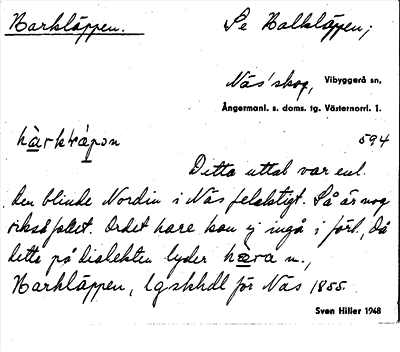 Harkläppen. Se Halkläppen;
Näs' skog, Vibyggerå sn,
Ångermanl. s. doms. tg. Västernorrl. l.
594
Detta uttal var enl.
den blinde Nordin i Näs felaktigt. Så är nog
också fallet. Ordet hare kan ej ingå i förl., då
detta på dialekten lyder hæra m.,
Harkläppen, lgskhdl för Näs 1855.
Sven Hiller 1948